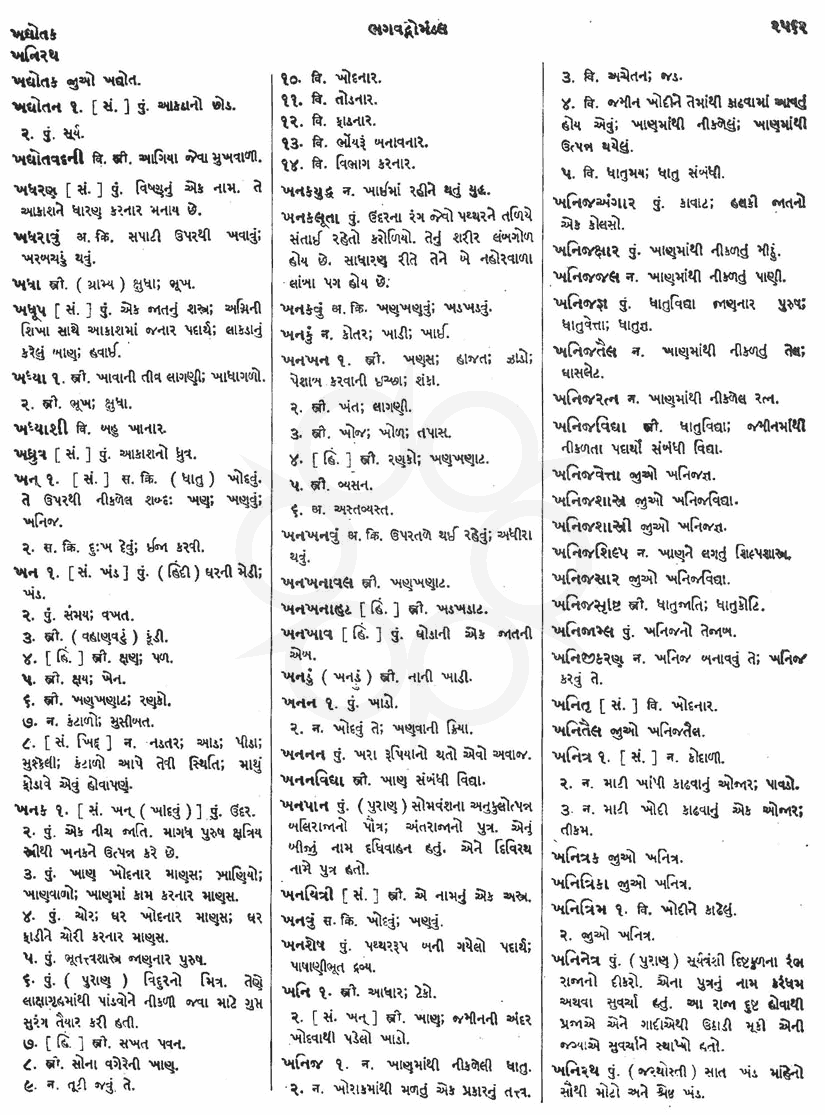 ખદ્યોતક
ખનિરથ
ભગવદ્ગોમંડલ
૨૫૬૨
ખદ્યોતક જુઓ ખદ્યોત.
ખદ્યોતન ૧. [ સં. ] પું. આકડાનો છોડ.
૨. પું. સૂર્ય.
ખદ્યોતવદની વિ. સ્ત્રી. આગિયા જેવા મુખવાળી.
ખધરણ [ સં. ] પું. વિષ્ણુનું એક નામ. તે
આકાશને ધારણ કરનાર મનાય છે.
ખધરાવું અ. ક્રિ. સપાટી ઉપરથી ખવાવું;
ખરબચડું થવું.
ખધા સ્ત્રી. ( ગ્રામ્ય ) ક્ષુધા; ભૂખ.
ખધૂપ [ સં. ] પું. એક જાતનું શસ્ત્ર; અગ્નિની
શિખા સાથે આકાશમાં જનાર પદાર્થ; લાકડાનું
કરેલું બાણ; હવાઈ.
ખધ્યા ૧. સ્ત્રી. ખાવાની તીવ્ર લાગણી; ખાધાગળો.
૨. સ્ત્રી. ભૂખ; ક્ષુધા.
ખધ્યાશી વિ. બહુ ખાનાર.
ખધ્રુવ [ સં. ] પું. આકાશનો ધ્રુવ.
ખન્ ૧. [ સં. ] સ. ક્રિ. ( ધાતુ ) ખોદવું.
તે ઉપરથી નીકળેલ શબ્દ: ખણ; ખણવું;
ખનિજ.
૨. સ. ક્રિ. દુઃખ દેવું; ઈજા કરવી.
ખન ૧. [ સં. ખંડ ] પું. ( હિંદી ) ઘરની મેડી;
ખંડ.
૨. પું. સમય; વખત.
૩. સ્ત્રી. ( વહાણવટું ) કૂંડી.
૪. [ હિં. ] સ્ત્રી. ક્ષણ; પળ.
૫. સ્ત્રી. ક્ષય; ખેન.
૬. સ્ત્રી. ખણખણાટ; રણકો.
૭. ન. કંટાળો; મુસીબત.
૮. [ સં. ખિદ્ ] ન. નડતર; આડ; પીડા;
મુશ્કેલી; કંટાળો આપે તેવી સ્થિતિ; માથું
ફોડાવે એવું હોવાપણું.
ખનક ૧. [ સં. ખન્ ( ખોદવું ) ] પું. ઉંદર.
૨. પું. એક નીચ જાતિ. માગધ પુરુષ ક્ષત્રિય
સ્ત્રીથી ખનકને ઉત્પન્ન કરે છે.
૩. પું. ખાણ ખોદનાર માણસ; ખાણિયો;
ખાણવાળો; ખાણમાં કામ કરનાર માણસ.
૪. પું. ચોર; ઘર ખોદનાર માણસ; ઘર
ફાડીને ચોરી કરનાર માણસ.
૫. પું. ભૂતત્ત્વશાસ્ત્ર જાણનાર પુરુષ.
૬. પું. ( પુરાણ ) વિદુરનો મિત્ર. તેણે
લાક્ષાગૃહમાંથી પાંડવોને નીકળી જવા માટે ગુપ્ત
સુરંગ તૈયાર કરી હતી.
૭. [ હિં. ] સ્ત્રી. સખત પવન.
૮. સ્ત્રી. સોના વગેરેની ખાણ.
૯. ન. તૂટી જવું તે.
૧૦. વિ. ખોદનાર.
૧૧. વિ. તોડનાર.
૧૨. વિ. ફાડનાર.
૧૩. વિ. ભોંયરૂં બનાવનાર.
૧૪. વિ. વિભાગ કરનાર.
ખનકયુદ્ધ ન. ખાઈમાં રહીને થતું યુદ્ધ.
ખનકલૂતા પું. ઉંદરના રંગ જેવો પથ્થરને તળિયે
સંતાઈ રહેતો કરોળિયો. તેનું શરીર લંબગોળ
હોય છે. સાધારણ રીતે તેને બે નહોરવાળા
લાંબા પગ હોય છે.
ખનકવું અ. ક્રિ. ખણખણવું; ખડખડવું.
ખનકું ન. કોતર; ખાડી; ખાઈ.
ખનખન ૧. સ્ત્રી. ખણસ; હાજત; ઝાડો;
પેશાબ કરવાની ઇચ્છા; શંકા.
૨. સ્ત્રી. ખંત; લાગણી.
૩. સ્ત્રી. ખોજ; ખોળ; તપાસ.
૪. [ હિં. ] સ્ત્રી. રણુકો; ખણખણાટ.
૫. સ્ત્રી. વ્યસન.
૬. અ. અસ્તવ્યસ્ત.
ખનખનવું અ. ક્રિ. ઉપરતળે થઈ રહેવું; અધીરા
થવું.
ખનખનાવલ સ્ત્રી. ખણખણાટ.
ખનખનાહટ [ હિં. ] સ્ત્રી. ખડખડાટ.
ખનખાવ [ હિં. ] પું. ઘોડાની એક જાતની
એબ.
ખનડું ( ખનડું ) સ્ત્રી. નાની ખાડી.
ખનન ૧. પું. ખાડો.
૨. ન. ખોદવું તે; ખણવાની ક્રિયા.
ખનનન પું. ખરા રૂપિયાનો થતો એવો અવાજ.
ખનનવિદ્યા સ્ત્રી. ખાણ સંબંધી વિદ્યા.
ખનપાન પું. ( પુરાણ ) સોમવંશના અનુકુલોત્પન્ન
બલિરાજાનો પૌત્ર; અંતરાજાનો પુત્ર. એનું
બીજું નામ દધિવાહન હતું. એને દિવિરથ
નામે પુત્ર હતો.
ખનયિત્રી [ સં. ] સ્ત્રી. એ નામનું એક અસ્ત્ર.
ખનવું સ. ક્રિ. ખોદવું; ખણવું.
ખનશેષ પું. પથ્થરરૂપ બની ગયેલો પદાર્થ;
પાષાણીભૂત દ્રવ્ય.
ખનિ ૧. સ્ત્રી. આધાર; ટેકો.
૨. [ સં. ખન્ ] સ્ત્રી. ખાણ; જમીનની અંદર
ખોદવાથી પડેલો ખાડો.
ખનિજ ૧. ન. ખાણમાંથી નીકળેલી ધાતુ.
૨. ન. ખોરાકમાંથી મળતું એક પ્રકારનું તત્ત્વ.
૩. વિ. અચેતન; જડ.
૪. વિ. જમીન ખોદીને તેમાંથી કાઢવામાં આવતું
હોય એવું; ખાણમાંથી નીકળેલું; ખાણમાંથી
ઉત્પન્ન થયેલું.
૫. વિ. ધાતુમય; ધાતુ સંબંધી.
ખનિજઅંગાર પું. કાવાટ; હલકી જાતનો
એક કોલસો.
ખનિજક્ષાર પું. ખાણમાંથી નીકળતું મીઠું.
ખનિજજલ ન. ખાણમાંથી નીકળતું પાણી.
ખનિજજ્ઞ પું. ધાતુવિદ્યા જાણનાર પુરુષ;
ધાતુવેત્તા; ધાતુજ્ઞ.
ખનિજતૈલ ન. ખાણમાંથી નીકળતું તેલ;
ઘાસલેટ.
ખનિજરત્ન ન. ખાણમાંથી નીકળેલ રત્ન.
ખનિજવિદ્યા સ્ત્રી. ધાતુવિદ્યા; જમીનમાંથી
નીકળતા પદાર્થો સંબંધી વિદ્યા.
ખનિજવેત્તા જુઓ ખનિજજ્ઞ.
ખનિજશાસ્ત્ર જુઓ ખનિજવિદ્યા.
ખનિજશાસ્ત્રી જુઓ ખનિજજ્ઞ.
ખનિજશિલ્પ ન. ખાણને લગતું શિલ્પશાસ્ત્ર.
ખનિજસાર જુઓ ખનિજવિદ્યા.
ખનિજસૃષ્ટિ સ્ત્રી. ધાતુજાતિ; ધાતુકોટિ.
ખનિજામ્લ પું. ખનિજનો તેજાબ.
ખનિજીકરણ ન. ખનિજ બનાવવું તે; ખનિજ
કરવું તે.
ખનિતૃ [ સં. ] વિ. ખોદનાર.
ખનિતૈલ જુઓ ખનિજતૈલ.
ખનિત્ર ૧. [ સં. ] ન. કોદાળી.
૨. ન. માટી ખાંપી કાઢવાનું ઓજાર; પાવડો.
૩. ન. માટી ખોદી કાઢવાનું એક ઓજાર;
તીકમ.
ખનિત્રક જુઓ ખનિત્ર.
ખનિત્રિકા જુઓ ખનિત્ર.
ખનિત્રિમ ૧. વિ. ખોદીને કાઢેલું.
૨. જુઓ ખનિત્ર.
ખનિનેત્ર પું. ( પુરાણ ) સૂર્યવંશી દિષ્ટકુળના રંભ
રાજાનો દીકરો. એના પુત્રનું નામ કરંધમ
અથવા સુવર્ચા હતું. આ રાજા દુષ્ટ હોવાથી
પ્રજાએ એને ગાદીએથી ઉઠાડી મૂકી એની
જગ્યાએ સુવર્ચાને સ્થાપ્યો હતો.
ખનિરથ પું. ( જરથોસ્તી ) સાત ખંડ માંહેનો
સૌથી મોટો અને શ્રેષ્ઠ ખંડ.